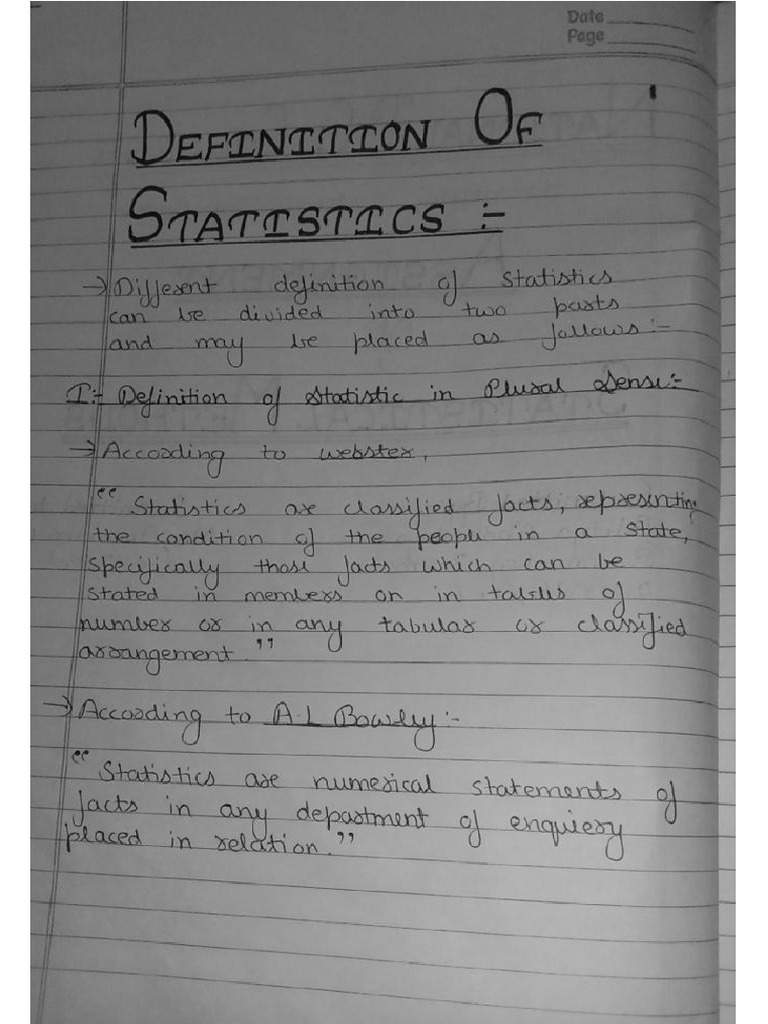 Date
Page
DEFINITION OF
STATISTICS :-
→ Different definition of statistics
can be divided into two parts
and may be placed as follows :-
I :- Definition of Statistic in Plural Sense :-
→ According to webster,
“ Statistics are classified facts, representing
the condition of the people in a state,
specifically those facts which can be
stated in members or in tables of
number or in any tabular or classified
arrangement. ”
→ According to A.L Bowley :-
“ Statistics are numerical statements of
facts in any department of enquiery
placed in relation. ”